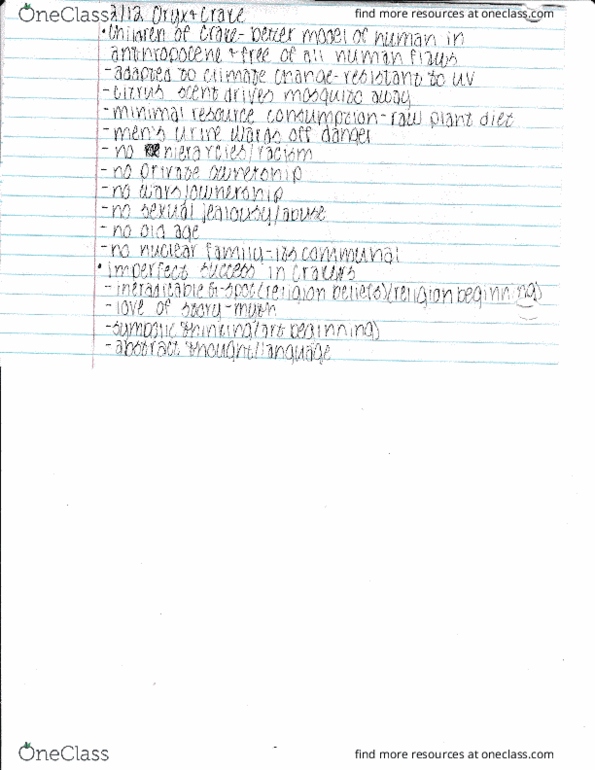 OneClass
find more resources at oneclass.com
2/12 Oryx + Crake
• Children of Crake - better model of human in
anthropocene + free of all human flaws
- adapted to climate change - resistant to UV
- citrus scent drives mosquito away
- minimal resource consumption - raw plant diet
- men's urine wards off danger
- no hierarchies/racism
- no private ownership
- no wars/ownership
- no sexual jealousy/abuse
- no old age
- no nuclear family - its communal
• imperfect success in Crakers
- ineradicable G-spot (religion beliefs) (religion beginning)
- love of story - myth
- symbolic thinking (art beginning)
- abstract thought/language
OneClass
find more resources at oneclass.com